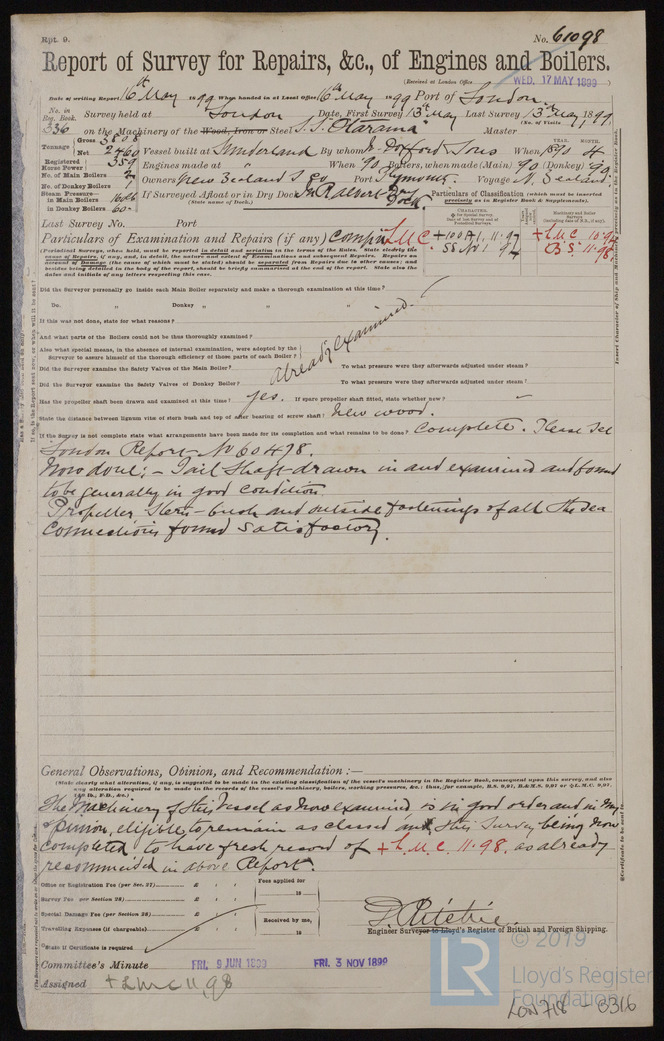 Rpt. 9.
No. 61098
Report of Survey for Repairs, &c., of Engines and Boilers.
(Received at London Office WED. 17 MAY 1899)
Date of writing Report 16th May 1899 When handed in at Local Office 16th May 1899 Port of London
No. in Reg. Book. Survey held at London Date, First Survey 13th May Last Survey 13th May, 1899
336 on the Machinery of the Wood, Iron or Steel S.S. "Otarama" Master
Tonnage Gross 3808 Net 2460 Vessel built at Sunderland By whom Doxford & Sons When 1890 4
Registered Horse Power 359 Engines made at " When '90 Boilers, when made (Main) '90 (Donkey) '90
No. of Main Boilers Owners New Zealand S Co Port Plymouth. Voyage N. Zealand
No. of Donkey Boilers 1
Steam Pressure in Main Boilers 160 lb If Surveyed Afloat or in Dry Dock R Albert Dry Dock
in Donkey Boilers 60 (State name of Dock.)
Particulars of Classification (which must be inserted precisely as in Register Book & Supplements).
Last Survey No. Port
Particulars of Examination and Repairs (if any) LMC
+100A1, 11.97 + L.M.C. 10.94
B.S. 11.98
Did the Surveyor personally go inside each Main Boiler separately and make a thorough examination at this time?
Do. " Donkey " " "
If this was not done, state for what reasons?
already examined.
And what parts of the Boilers could not be thus thoroughly examined?
Also what special means, in the absence of internal examination, were adopted by the
Surveyor to assure himself of the thorough efficiency of those parts of each Boiler?
Did the Surveyor examine the Safety Valves of the Main Boiler? To what pressure were they afterwards adjusted under steam?
Did the Surveyor examine the Safety Valves of Donkey Boiler? To what pressure were they afterwards adjusted under steam?
Has the propeller shaft been drawn and examined at this time? yes. If spare propeller shaft fitted, state whether new?
State the distance between lignum vitæ of stern bush and top of after bearing of screw shaft? New wood.
If the Survey is not complete state what arrangements have been made for its completion and what remains to be done? Complete. Please see
London Report No 60478.
Now done; - Tail Shaft drawn in and examined and found
to be generally in good condition.
Propeller Stern-bush and outside fastenings of all the sea
Connections found satisfactory.
General Observations, Opinion, and Recommendation:—
(State clearly what alteration, if any, is suggested to be made in the existing classification of the vessel's machinery in the Register Book, consequent upon this survey, and also
any alteration required to be made in the records of the vessel's machinery, boilers, working pressures, &c.: thus, for example, B.S. 9,91, B.&M.S. 9,91 or L.M.C. 9,91,
The Machinery of this Vessel as now examined is in good order and in my
opinion, eligible to remain as classed and this Survey being now
completed to have fresh record of + L.M.C. 11.98. as already
recommended in above Report.
Office or Registration Fee (per Sec. 27) £ : : Fees applied for
Survey Fee (per Section 28) £ : : 18
Special Damage Fee (per Section 28) £ : : Received by me,
Travelling Expenses (if chargeable) £ : : 18
D. Ritchie.
Engineer Surveyor to Lloyd's Register of British and Foreign Shipping.
State if Certificate is required
Committee's Minute FRI. 9 JUN 1899 FRI. 3 NOV 1899
Assigned + LMC 11,98
© 2019
LR
Lloyd's Register
Foundation
LON718-0316